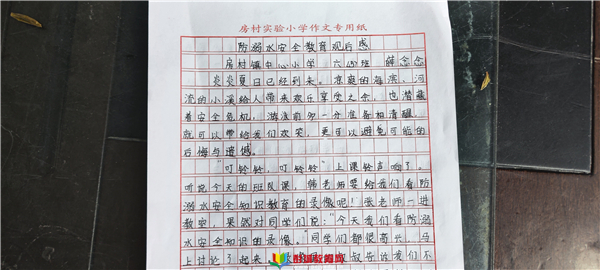 房村实验小学作文专用纸
防溺水安全教育观后感
房村镇中心小学 六 班 念念
炎炎夏日已经到来，凉爽的海滨、河
流的小溪给人带来欢乐享受之余，也潜藏
着安全危机，游泳前多一分准备和清醒，
就可以带给我们欢笑，更可以避免可能的
后悔与遗憾。
“叮铃铃，叮铃铃”上课铃声响了，
听说今天的班队课，韩老师要给我们看防
溺水安全知识教育的录像呢！张老师一进
教室，果然对同学们说：“今天我们看防溺
水安全知识的录像。”同学们都很高兴，马
上讨论了起来
叔告诉我们不